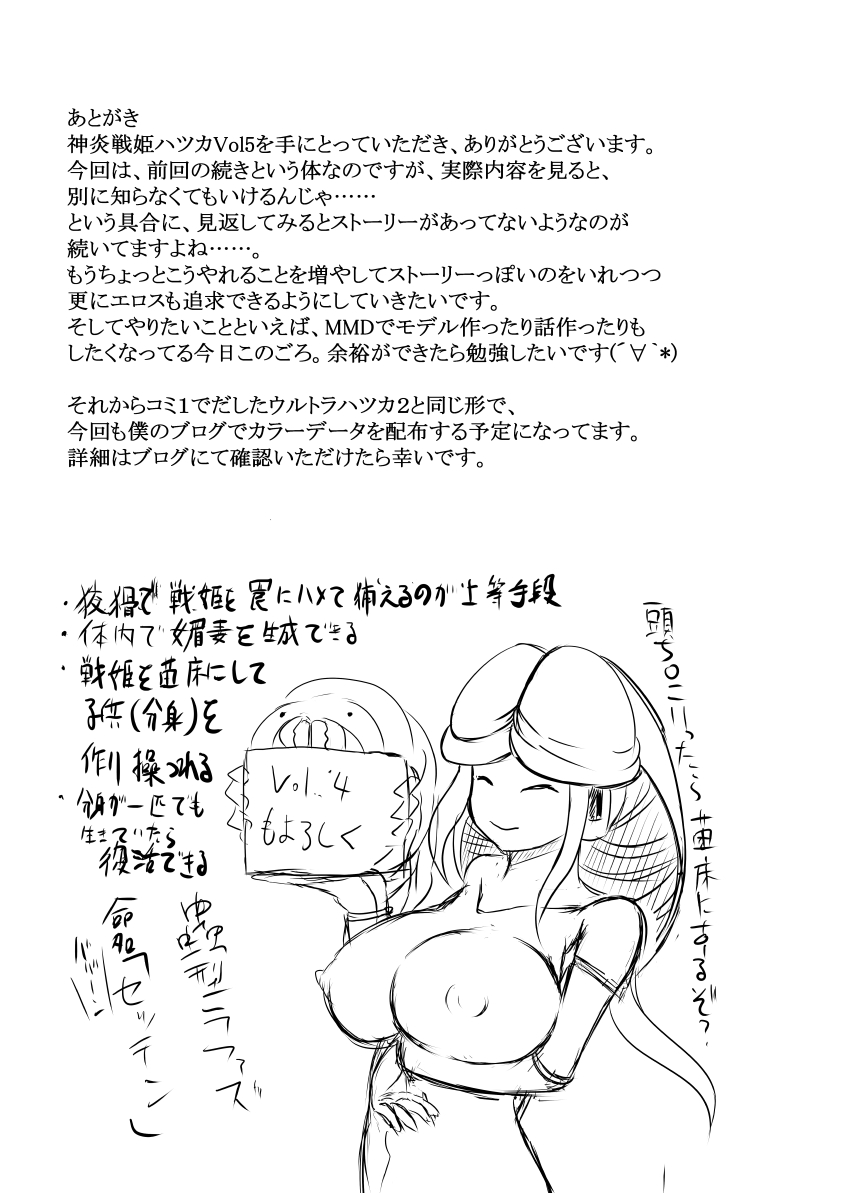 あとがき
神炎戦姫ハツカVol5を手にとっていただき、ありがとうございます。
今回は、前回の続きという体なのですが、実際内容を見ると、
別に知らなくてもいけるんじゃ……
という具合に、見返してみるとストーリーがあってないようなのが
続いてますよね……。
もうちょっとこうやれることを増やしてストーリーっぽいのをいれつつ
更にエロスも追求できるようにしていきたいです。
そしてやりたいことといえば、MMDでモデル作ったり話作ったりも
したくなってる今日このごろ。余裕ができたら勉強したいです(´∀｀*)
それからコミ１でだしたウルトラハツカ２と同じ形で、
今回も僕のブログでカラーデータを配布する予定になってます。
詳細はブログにて確認いただけたら幸いです。
・狡猾で戦姫を罠にハメて捕えるのが上等手段
・体内で媚毒を生成できる
・戦姫を苗床にして
子供(分身)を
作り操つれる
・分身が一匹でも
生きていたら
復活できる
Vol.4
もよろしく
型ニラファズ
命名「セッチン」
バァーン